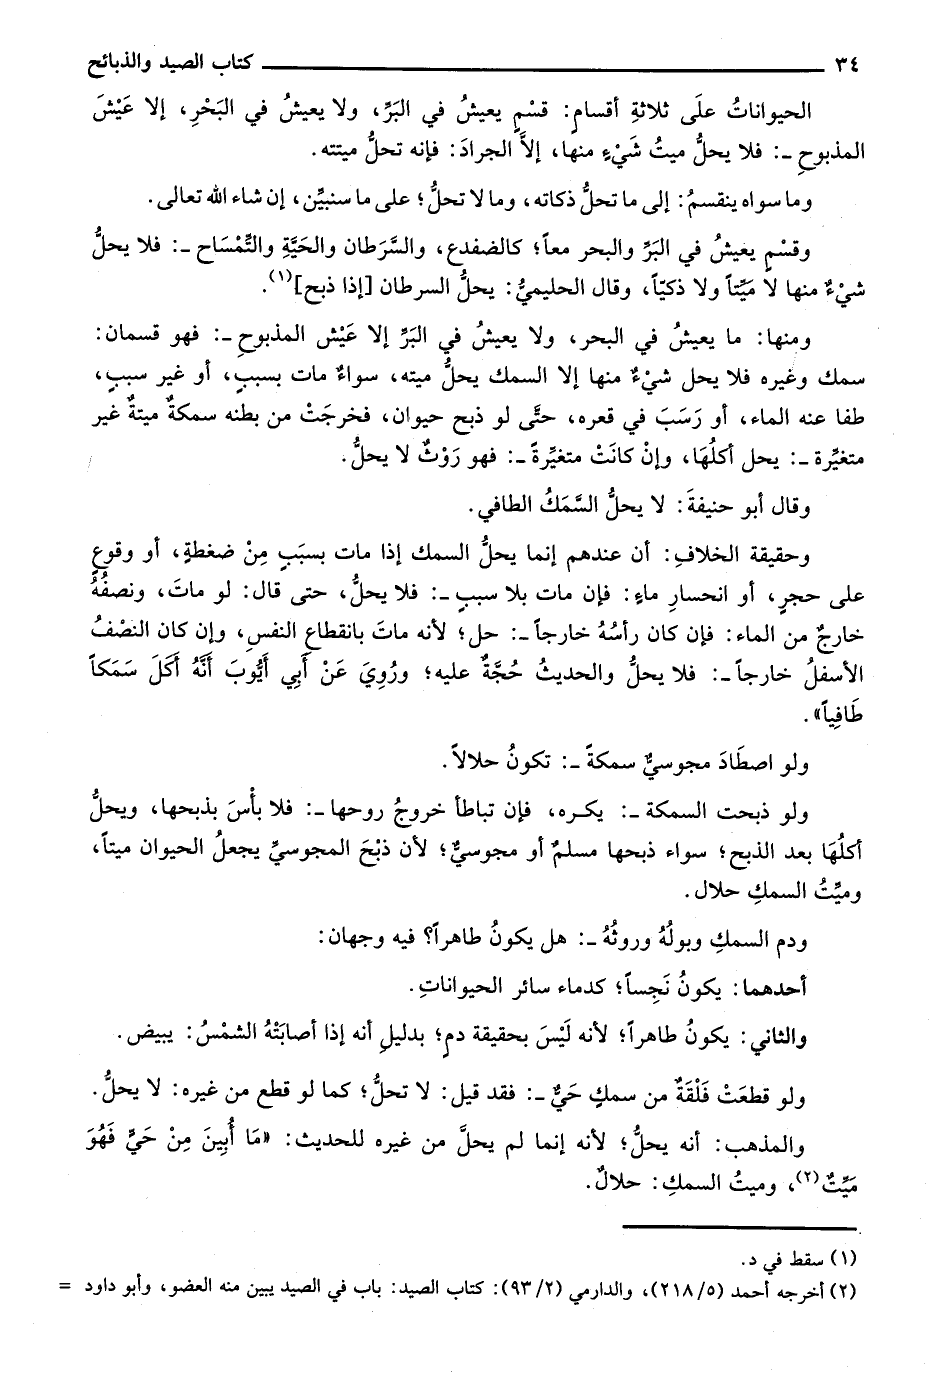 ٣٤ كتاب الصيد والذبائح
الحيواناتُ علَى ثلاثةِ أقسامٍ: قسْمٍ يعيشُ في البَرِّ، ولا يعيشُ في البَحْرِ، إلا عَيْشَ
المذبوحِ ـ: فلا يحلُّ ميتُ شَيْءٍ منها، إلاَّ الجرادَ: فإنه تحلُّ ميتته.
وما سواه ينقسمُ: إلى ما تحلُّ ذكاته، وما لا تحلُّ؛ على ما سنبيِّن، إن شاء الله تعالى.
وقسْمٍ يعيشُ في البَرِّ والبحر معاً؛ كالضفدع، والسَّرَطان والحَيَّةِ والتِّمْسَاح ـ: فلا يحلُّ
شيْءٌ منها لا مَيِّتاً ولا ذكيّاً، وقال الحليميُّ: يحلُّ السرطان [إذا ذبح](١).
ومنها: ما يعيشُ في البحر، ولا يعيشُ في البَرِّ إلا عَيْش المذبوحِ ـ: فهو قسمان:
سمك وغيره فلا يحل شيْءٌ منها إلا السمك يحلُّ ميته، سواءٌ مات بسببٍ، أو غير سببٍ،
طفا عنه الماء، أو رَسَبَ في قعره، حتَّى لو ذبح حيوان، فخرجَتْ من بطنه سمكةٌ ميتةٌ غير
متغيِّرة ـ: يحل أكلُهَا، وإنْ كانَتْ متغيِّرةً ـ: فهو رَوْثٌ لا يحلُّ.
وقال أبو حنيفةَ: لا يحلُّ السَّمَكُ الطافي.
وحقيقة الخلافِ: أن عندهم إنما يحلُّ السمك إذا مات بسبَبٍ مِنْ ضغطةٍ، أو وقوعٍ
على حجرٍ، أو انحسارِ ماءٍ: فإن مات بلا سببٍ ـ: فلا يحلُّ، حتى قال: لو ماتَ، ونصفُهُ
خارجٌ من الماء: فإن كان رأسُهُ خارجاً ـ: حل؛ لأنه ماتَ بانقطاع النفسِ، وإن كان النصْفُ
الأسفلُ خارجاً ـ: فلا يحلُّ والحديثُ حُجَّةٌ عليه؛ ورُوِيَ عَنْ أَبِي أَيُّوبَ أَنَّهُ أَكَلَ سَمَكاً
طَافِياً».
ولو اصطَادَ مجوسيٌّ سمكةً ـ: تكونُ حلالاً.
ولو ذبحت السمكة ـ: يكره، فإن تباطأ خروجُ روحها ـ: فلا بأْسَ بذبحها، ويحلُّ
أكلُهَا بعد الذبح؛ سواء ذبحها مسلمٌ أو مجوسيٌّ؛ لأن ذبْحَ المجوسيِّ يجعلُ الحيوان ميتاً،
وميِّتُ السمكِ حلال.
ودم السمكِ وبولُهُ وروثُهُ ـ: هل يكونُ طاهراً؟ فيه وجهان:
أحدهما: يكونُ نَجِساً؛ كدماء سائر الحيواناتِ.
والثاني: يكونُ طاهراً؛ لأنه لَيْسَ بحقيقة دمٍ؛ بدليلِ أنه إذا أصابَتْهُ الشمْسُ: يبيض.
ولو قطعَتْ فَلْقَةٌ من سمكٍ حَيٍّ ـ: فقد قيل: لا تحلُّ؛ كما لو قطع من غيره: لا يحلُّ.
والمذهب: أنه يحلُّ؛ لأنه إنما لم يحلَّ من غيره للحديث: «مَا أُبِينَ مِنْ حَيٍّ فَهُوَ
مَيِّتٌ(٢)، وميتُ السمكِ: حلالٌ.
(١) سقط في د.
(٢) أخرجه أحمد (٢١٨/٥)، والدارمي (٩٣/٢): كتاب الصيد: باب في الصيد يبين منه العضو، وأبو داود =